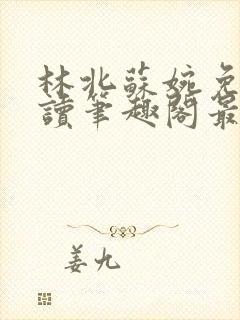 林北蘇婉免
讀筆趣閣最
姜九